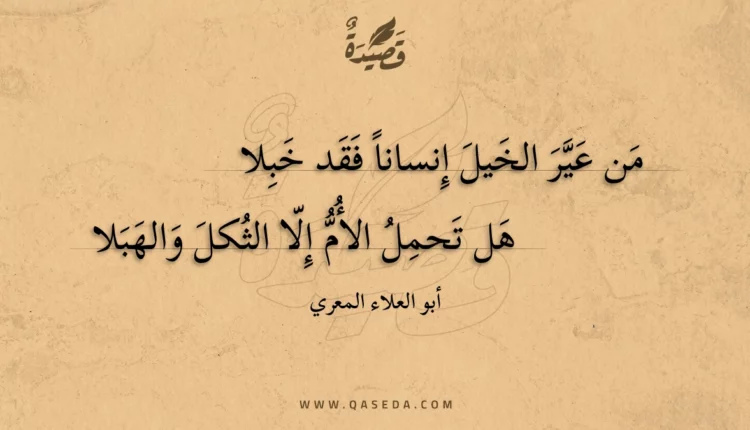 قَصِيدَةٌ
مَن عَيَّرَ الخَيلَ إِنساناً فَقَد خَبِلا
هَل تَحمِلُ الأُمُّ إِلّا الثُكلَ وَالهَبَلا
أبو العلاء المعري
WWW.QASEDA.COM